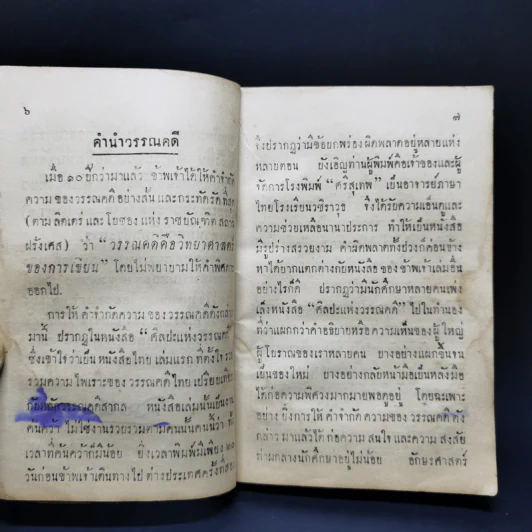 ๖
คำนำวรรณคดี
เมื่อ ๑๐ ปีกว่ามาแล้ว ข้าพเจ้าได้ให้คำจำกัด
ความของวรรณคดีอย่างสั้น และกระทัดรัดที่สุด
(ตามลิตเร่ และโบซองแห่งราชบัณฑิตสถาน
ฝรั่งเศส) ว่า “วรรณคดีคือวิทยาศาสตร์
ของการเขียน” โดยไม่พยายามให้คำพิศดาร
ออกไป.
การให้คำจำกัดความของวรรณคดีดังกล่าว
มานี้ ปรากฏในหนังสือ “ศิลปะแห่งวรรณคดี”
ซึ่งเข้าใจว่าเป็นหนังสือไทยเล่มแรกที่ตั้งใจ
รวมความไพเราะของวรรณคดีไทยเปรียบเทียบ
กับหลักวรรณคดีสากล หนังสือเล่มนั้นเป็นงาน
ค้นคว้า ไม่ใช่งานรวบรวมตามคนนั้นคนนี้ว่า
เวลาที่ค้นคว้าก็มีน้อย ยิ่งเวลาพิมพ์มีเพียง ๒๐
วันก่อนข้าพเจ้าเดินทางไปต่างประเทศครั้งที่สอง
๗
จึงปรากฏว่ามีข้อยกพร่องผิดพลาดอยู่หลายแห่ง
หลายตอน ยังเอิญท่านผู้พิมพ์คือเจ้าของและผู้
จัดการโรงพิมพ์ “ศิริสุเทพ” เป็นอาจารย์ภาษา
ไทยโรงเรียนวชิราวุธ จึงได้รับความเอ็นดูและ
ความช่วยเหลือนานาประการ ทำให้เป็นหนังสือ
มีรูปร่างสรวยงาม คำผิดพลาดทั้งปวงก็ค่อนข้าง
หาได้ยากแตกต่างกับหนังสือของข้าพเจ้าเล่มอื่น
อย่างไรก็ดี ปรากฏว่ามีนักศึกษาหลายคนเพ่ง
เล็งหนังสือ “ศิลปแห่งวรรณคดี” ไปในทำนอง
ที่ว่าแผกกว่าคำอธิบายหรือความเห็นของผู้ใหญ่
ผู้โบราณของเราหลายคน บางอย่างแผกขึ้นจน
เป็นของใหม่ บางอย่างกลับหน้ามือเป็นหลังมือ
ได้ก่อความพิศวงมากมายพอดูอยู่ โดยฉะเพาะ
อย่างยิ่งการให้คำจำกัดความของวรรณคดีดัง
กล่าวมาแล้วได้ก่อความสนใจและความสงสัย
ท่ามกลางนักศึกษาอยู่ไม่น้อย อักษรศาสตร์